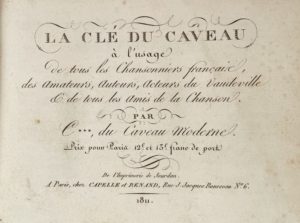 LA CLÉ DU CAVEAU
à l'usage
de tous les Chansonniers français,
des Amateurs, Auteurs, Acteurs du Vaudeville
& de tous les Amis de la Chanson.
PAR
C***, du Caveau Moderne.
Prix pour Paris 12f. et 15f. franc de port
De l'Imprimerie de Jourdan.
A Paris, chez CAPELLE et RENAND, Rue J. Jacques Rousseau No. 6.
1811.